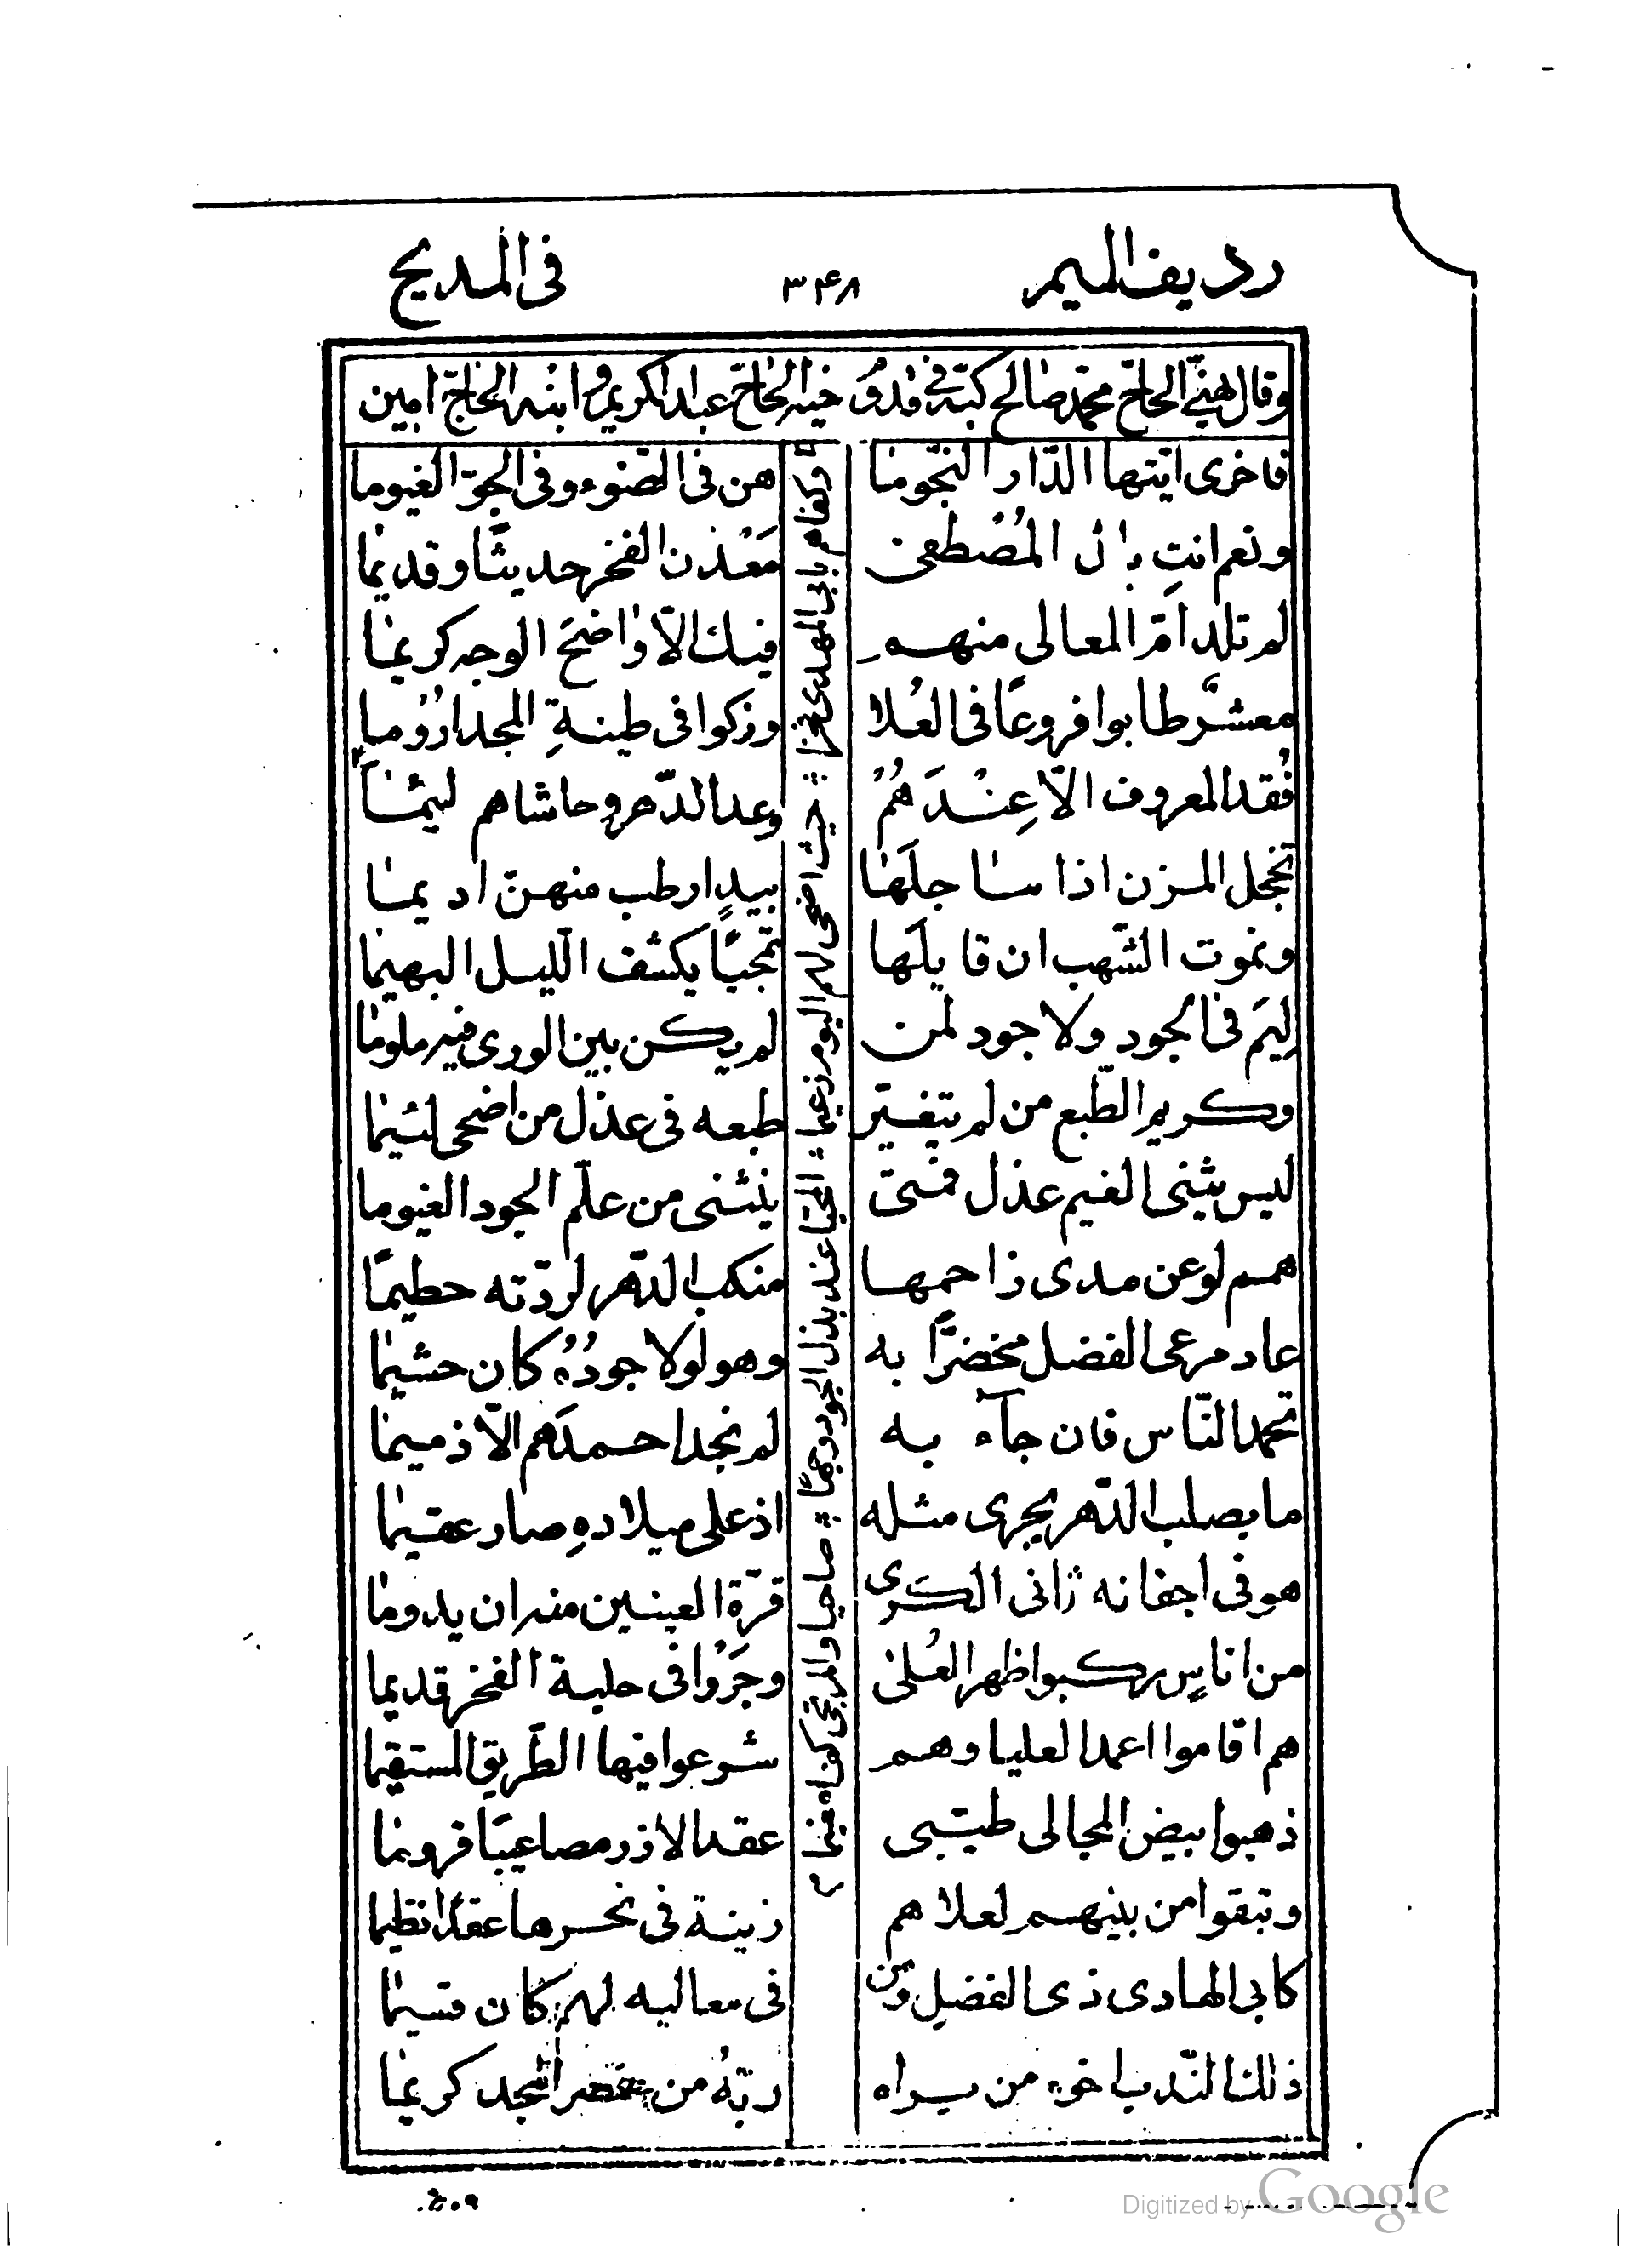 رديف الميم ٣٤٨ فى المديح
وقال يهنئ الحاج محمد صالح كبّه فى قدوم اخيه الحاج عبد الكريم وابنه الحاج امين
فاخرى ايّتها الدّار النّجوما هن فى الضوء وفى الجوّ الغيوما
ونعم انتِ بال المُصْطفى مَعْدن الفخر حديثًا وقديما
لم تلد امّ المعالى منهم فيك الّا واضحَ الوجه كريما
معشرٌ طابوا فروعًا فى العُلا وزكوا فى طينةِ المجد ارُوما
فُقد المعروف الّا عِنْدَهُمُ وعدا الدّهر وحاشاهم لئيما
تخجل المزن اذا ساجلَها بيدٍ ارطب منهنّ اديما
وتموت الشّهب ان قابلَها بمحيّا يكشف اللّيل البهيما
لِيمَ فى الجود ولا جود لمن لم يكن بين الورى فيه ملوما
وكريم الطّبع من لم يتغيّر طبعه فى عذل من اضحى لئيما
ليس يثنى الغيم عذل فمتى ينثنى من علّم الجود الغيوما
همم لو عن مدى زاحمها منكب الدّهر لردّته حطيمًا
عاد مرعى الفضل مخضرًّا به وهو لولا جودُهُ كان حشيما
تحمد النّاس فان جآء به لم نجد احمدَهم الّا ذميما
ما بصلب الدّهر يجرى مثله اذ على ميلادهِ صار عقيما
هو فى اجفانه زانى الكرى قرّة العينين منه ان يدوما
من اناسٍ ركبوا ظهر العُلى وجَرَوْا فى حلبة الفخر قديما
هم اقاموا اعمد العليا وهم شرعوا فيها الطّريق المستقيما
ذهبوا بيض المجالى طيّبى عقد الازر مصاعيبًا قروما
وتبقوا من بينهم لعلاهم زينة فى نحرها عقدًا نظيما
كابى الهادى ذى الفضل ومن فى معاليه لهم كان قسيما
ذلك النّدب اخوه من براه ربّهُ من عنصر المجد كريما
وكفاهم بابى المهدى فخرا حيث اضحى لهم اليوم زعيما
المحيّا عند بذل الجود وجهًا صاحيا والمرتجى كفاه غيما
Digitized by Google